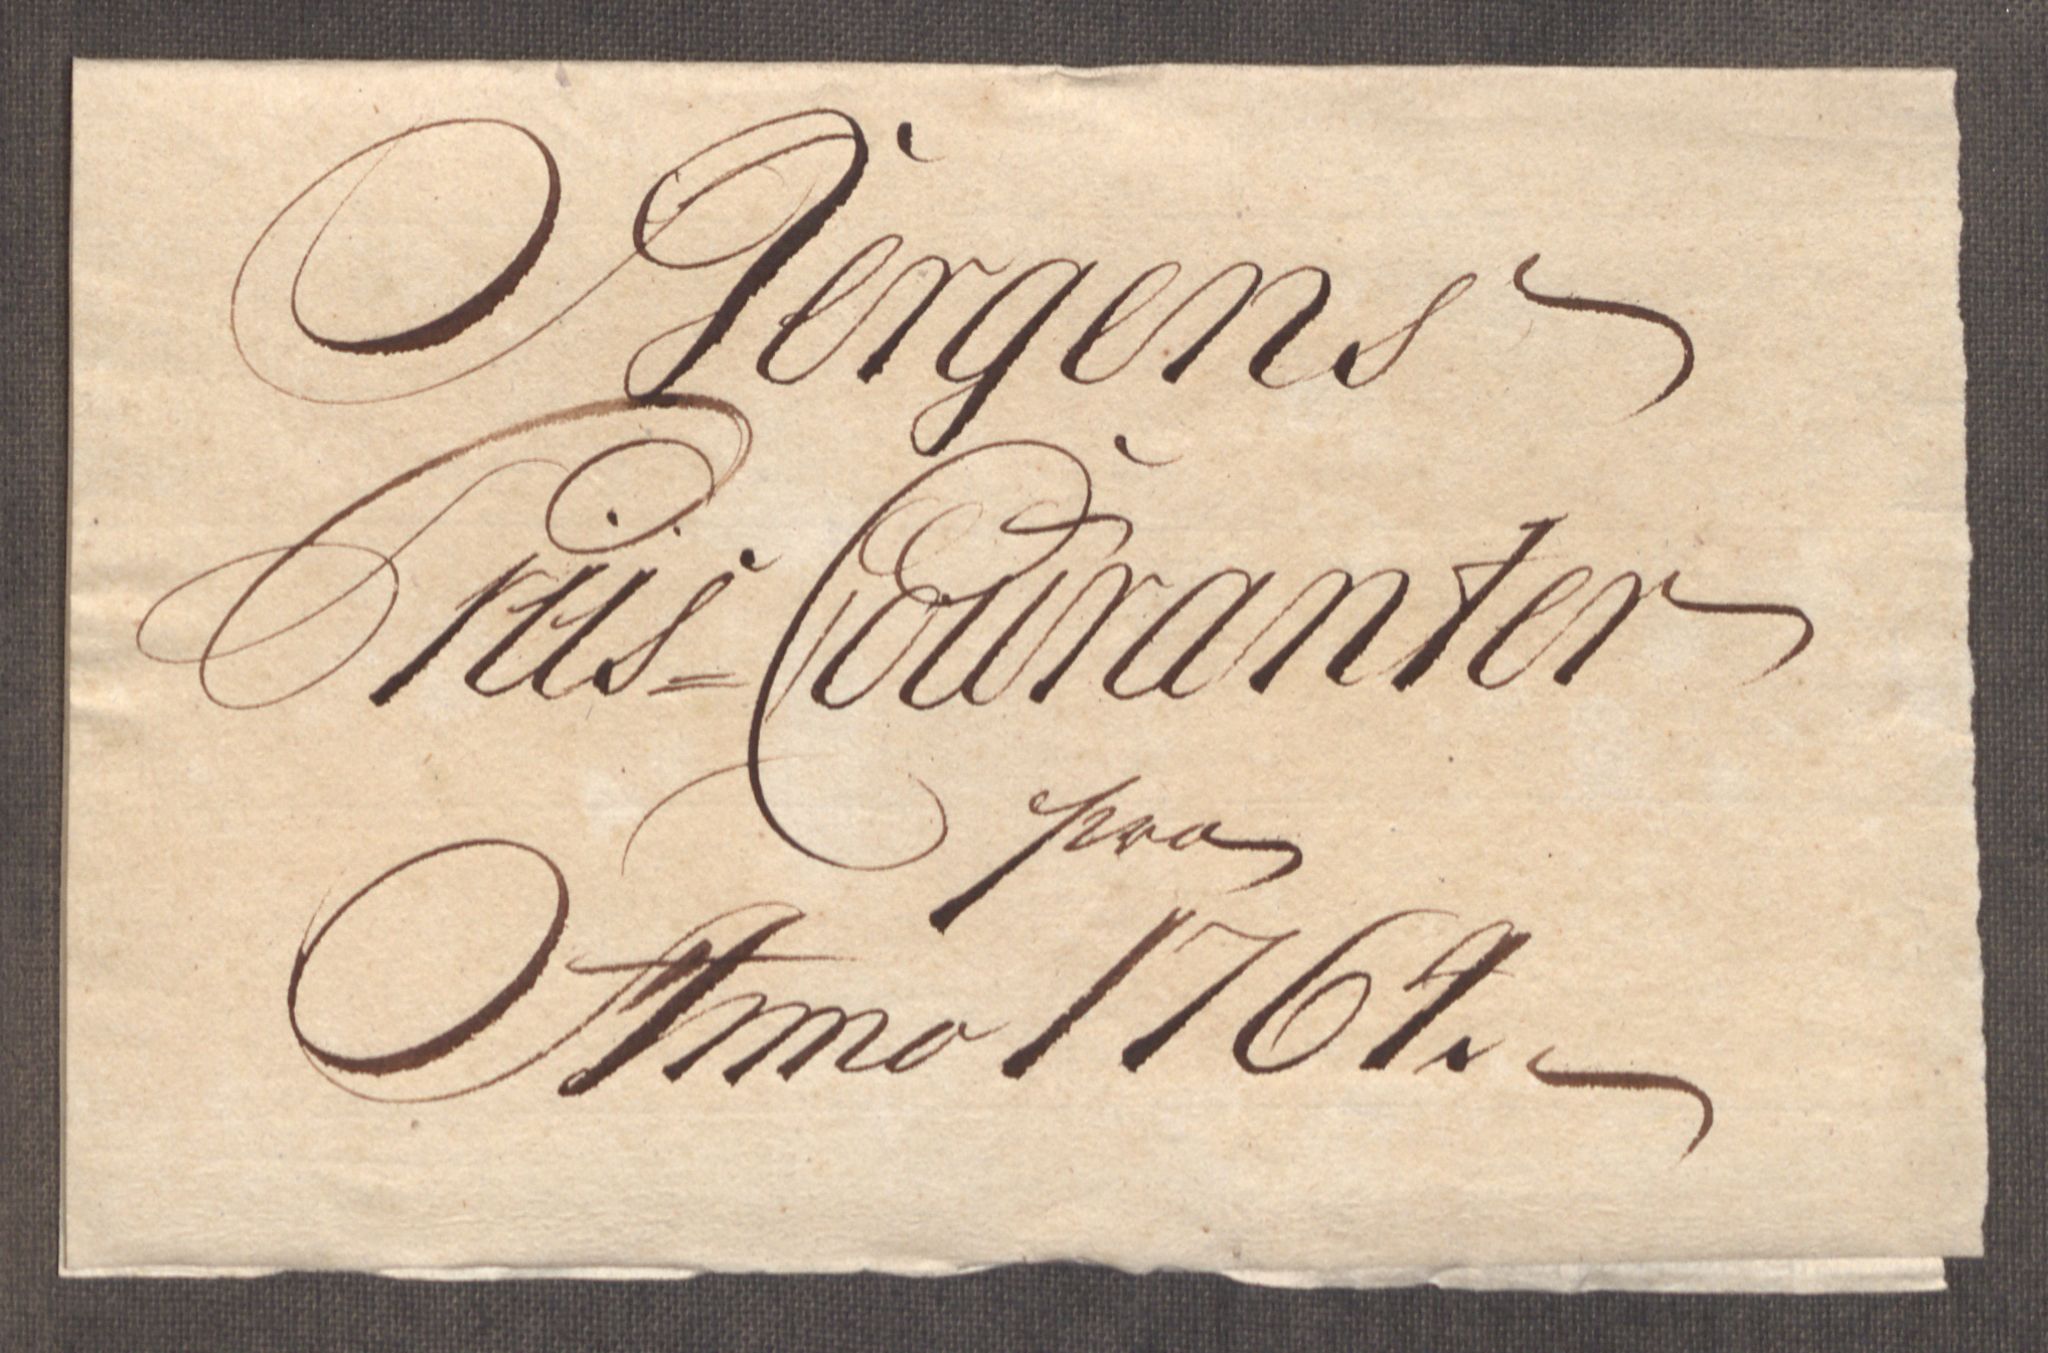 Bergens
Priis=Couranter
pro
Anno 1764.